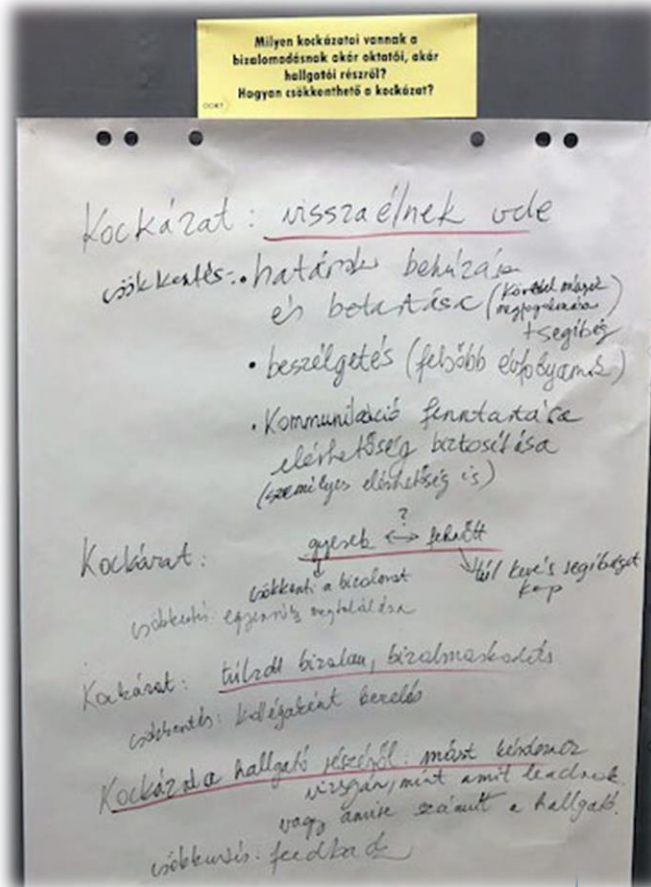 Milyen kockázatai vannak a
bizalomadásnak akár oktatói, akár
hallgatói részről?
Hogyan csökkenthető a kockázat?
Kockázat: visszaélnek vele
csökkentés: • határok behúzása
és betartása (követelmények
megfogalmazása)
+ segítség
• beszélgetés (felsőbb évfolyamok)
• Kommunikáció fenntartása
elérhetőség biztosítása
(személyes elérhetőség is)
?
Kockázat: gyerek ↔ felnőtt
csökkenti a bizalmat
túl kevés segítséget
kap
csökkentés: egyensúly megtalálása
Kockázat: túlzott bizalom, bizalmaskodás
csökkentés: kollégaként kezelés
Kockázat a hallgató részéről: mást kérdez
vizsgán, mint amit leadnak
vagy amire számít a hallgató.
csökkentés: feedback